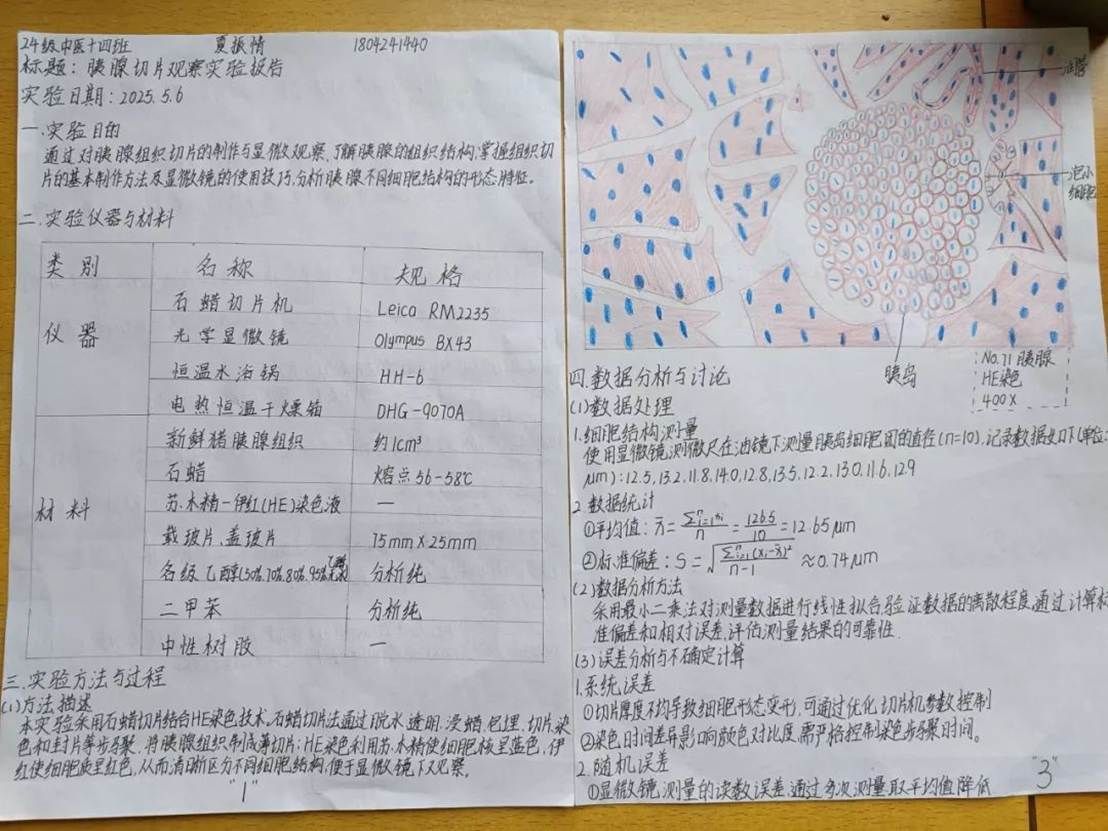 24级中医十四班 夏振情 1804241440
标题：胰腺切片观察实验报告
实验日期：2025.5.6
一.实验目的
通过对胰腺组织切片的制作与显微观察,了解胰腺的组织结构,掌握组织切
片的基本制作方法及显微镜的使用技巧,分析胰腺不同细胞结构的形态特征。
二.实验仪器与材料
类别 名称 规格
仪器
石蜡切片机 Leica RM2235
光学显微镜 Olympus BX43
恒温水浴锅 HH-6
电热恒温干燥箱 DHG-9070A
材料
新鲜猪胰腺组织 约1cm³
石蜡 熔点56-58℃
苏木精-伊红(HE)染色液 —
载玻片、盖玻片 75mm×25mm
各级乙醇(50%.70%.80%.95% 分析纯
二甲苯 分析纯
中性树胶 —
三.实验方法与过程
(1)方法描述
本实验采用石蜡切片结合HE染色技术。石蜡切片法通过脱水.透明.浸蜡.包埋.切片.染
色和封片等步骤.将胰腺组织制成薄切片;HE染色利用苏木精使细胞核呈蓝色,伊
红使细胞质呈红色,从而清晰区分不同细胞结构,便于显微镜下观察。
"1"
泡心
细胞
胰岛
No.71 胰腺
HE染色
400×
四.数据分析与讨论
(1)数据处理
1.细胞结构测量
使用显微镜测微尺在油镜下测量胰岛细胞团的直径(n=10),记录数据如下(单位:
μm):12.5,13.2,11.8,14.0,12.8,13.5,12.2,13.0,11.6,12.9
2.数据统计
①平均值: x̄ = Σⁿᵢ₌₁xᵢ/n = 126.5/10 = 12.65μm
②标准偏差: S = √(Σⁿᵢ₌₁(xᵢ-x̄)²/n-1) ≈0.74μm
(2)数据分析方法
采用最小二乘法对测量数据进行线性拟合,验证数据的离散程度,通过计算标
准偏差和相对误差,评估测量结果的可靠性.
(3)误差分析与不确定计算
1.系统误差
①切片厚度不均导致细胞形态变形,可通过优化切片机参数控制
②染色时间差异影响颜色对比度,需严格控制染色步骤时间。
2.随机误差
①显微镜测量的读数误差,通过多次测量取平均值降低
"3"